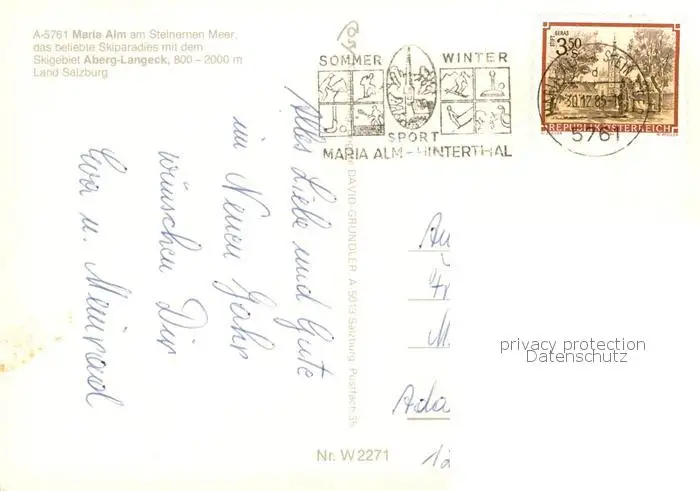 A-5761 Maria Alm am Steinernen Meer,
das beliebte Skiparadies mit dem
Skigebiet Aberg-Langeck, 800 – 2000 m
Land Salzburg
SOMMER WINTER
SPORT
MARIA ALM - HINTERTHAL
STIFT GERAS
3.50
REPUBLIK ÖSTERREICH
30.12.85
5761
Alles Liebe und Gute
im Neuen Jahr
wünschen Dir
Eva u. Meinrad
DAVID-GRÜNDLER A 5013 Salzburg, Postfach 35
M.
Ada
privacy protection
Datenschutz
Nr. W 2271